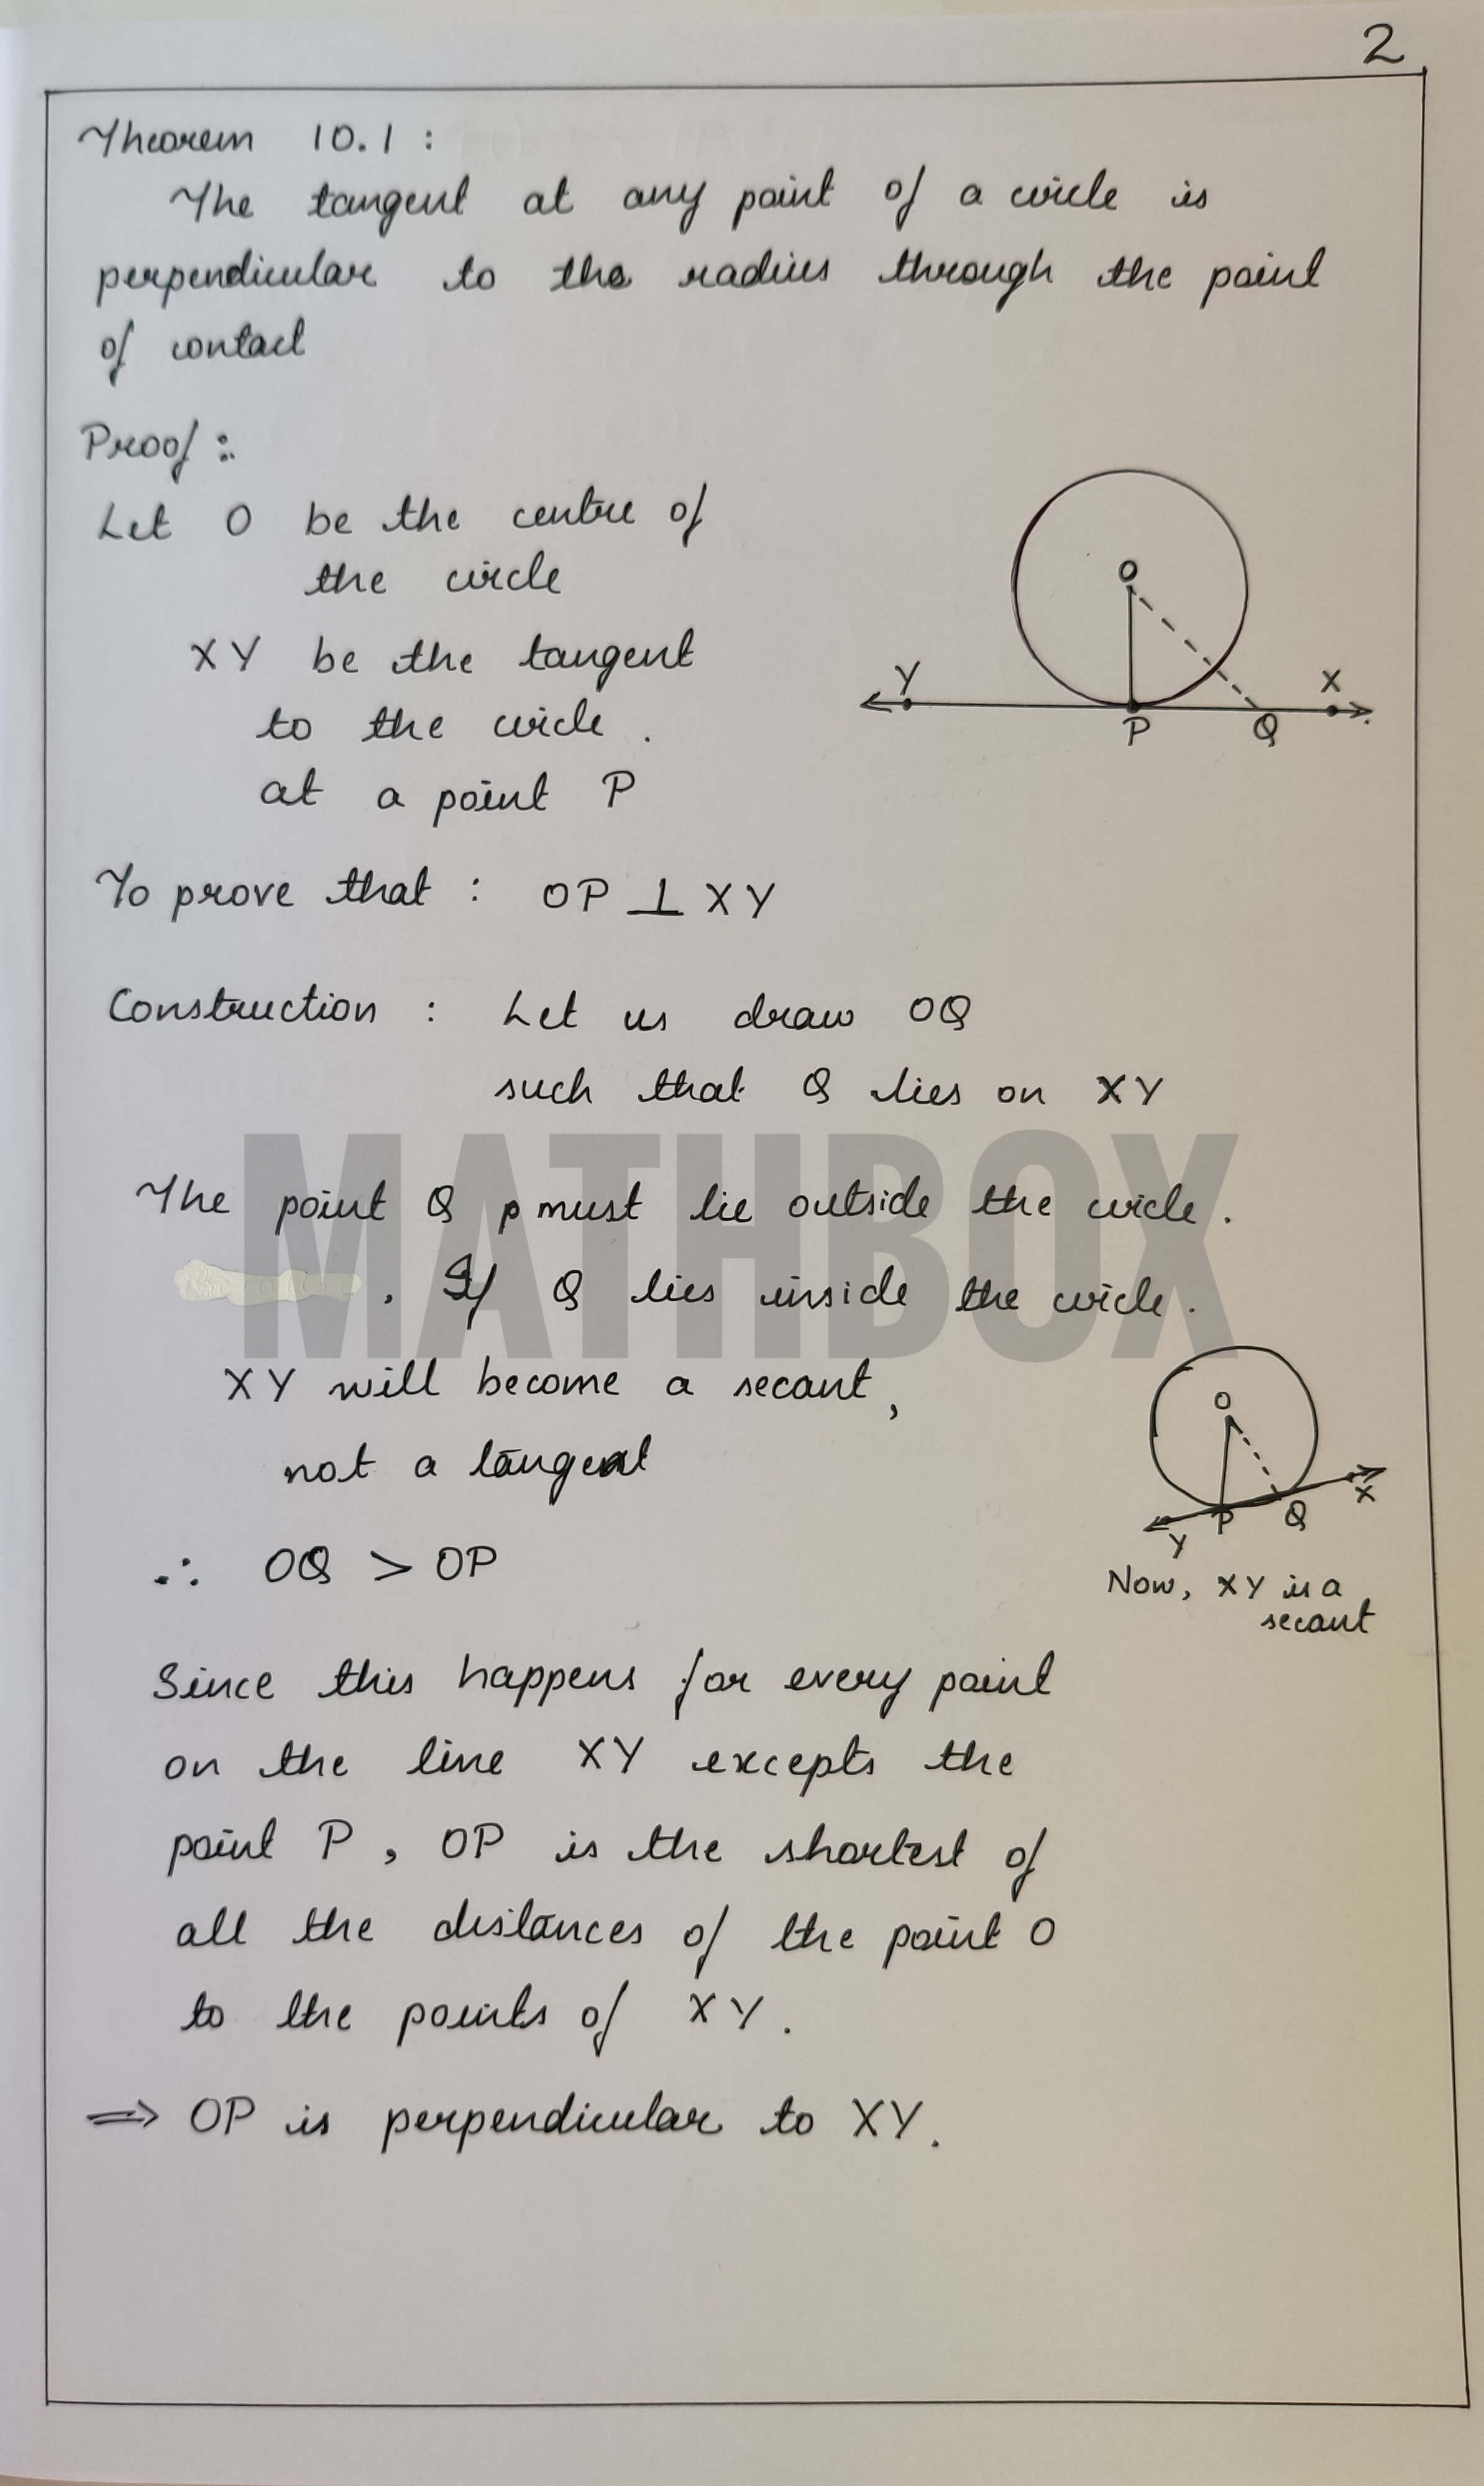 2
Theorem 10.1 :
The tangent at any point of a circle is
perpendicular to the radius through the point
of contact
Proof :
Let O be the centre of
the circle
XY be the tangent
to the circle .
at a point P
O
Y
X
P
Q
To prove that : OP ⊥ XY
Construction : Let us draw OQ
such that Q lies on XY
The point Q must lie outside the circle .
. If Q lies inside the circle .
XY will become a secant ,
not a tangent
O
X
Q
P
Y
Now, XY is a
secant
∴ OQ > OP
Since this happens for every point
on the line XY excepts the
point P , OP is the shortest of
all the distances of the point O
to the points of XY .
⇒ OP is perpendicular to XY .
MATHBOX